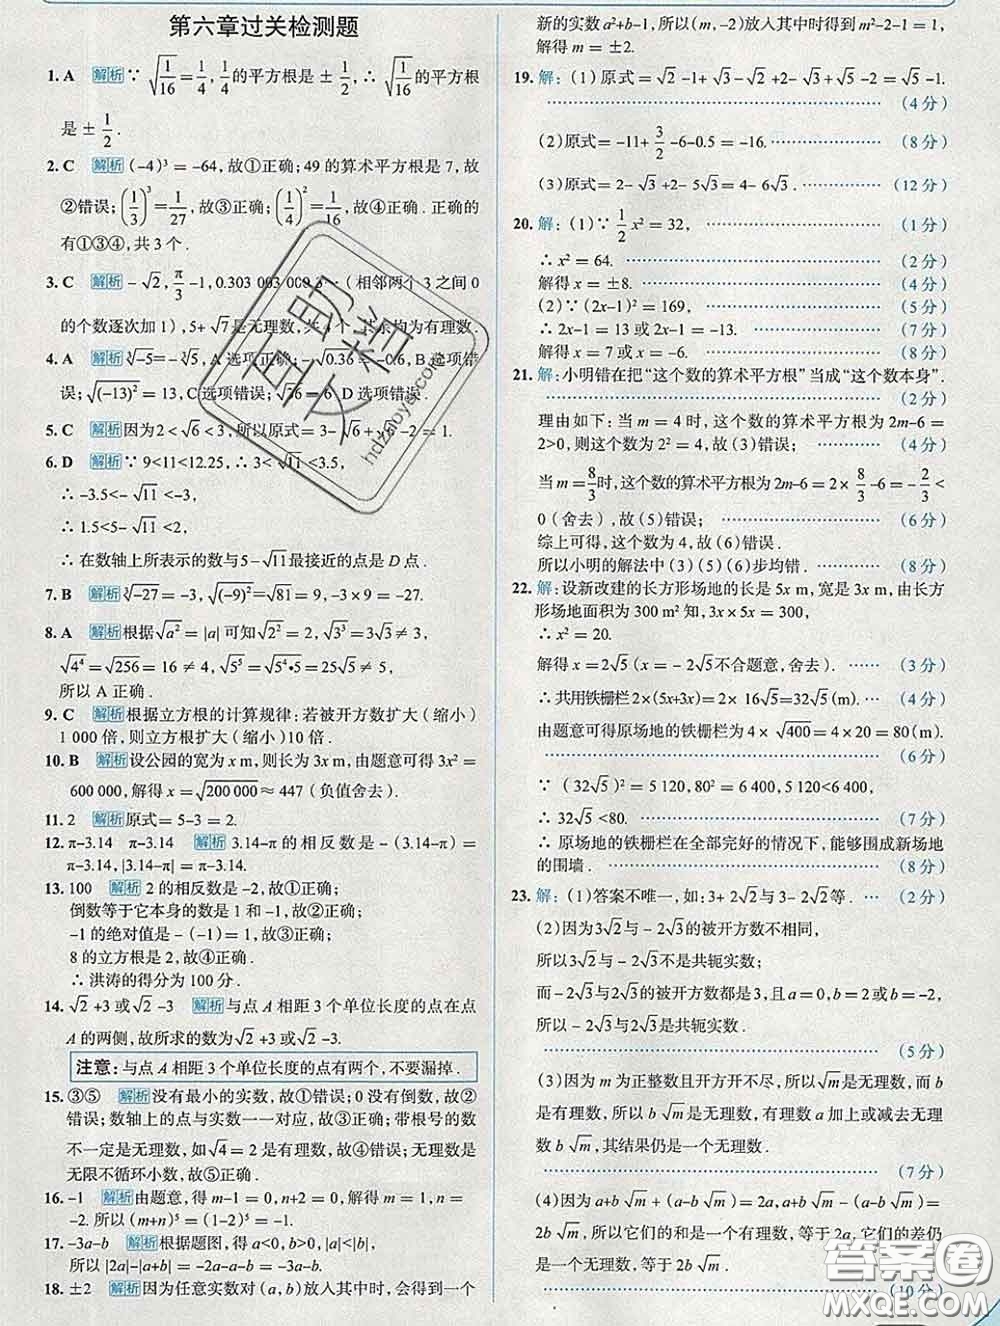 第六章过关检测题
1. A 解析 ∵ √(1/16) = 1/4, 1/4的平方根是 ± 1/2, ∴ √(1/16)的平方根
是 ± 1/2 .
2. C 解析 (-4)³ = -64, 故①正确; 49 的算术平方根是 7, 故
②错误; (1/3)³ = 1/27, 故③正确; (1/4)² = 1/16, 故④正确 . 正确的
有①③④, 共 3 个 .
3. C 解析 -√2, π/3 -1, 0.303 003 000 3…( 相邻两个 3 之间 0
的个数逐次加 1), 5+√7是无理数, 共 4 个, 其余均为有理数 .
4. A 解析 ∛-5 = -∛5, A 选项正确; -√0.36 = -0.6, B 选项错
误; √(-13)² = 13, C 选项错误; √36 = 6, D 选项错误 .
5. C 解析 因为 2 < √6 < 3, 所以原式 = 3-√6 +√6 -2 = 1.
6. D 解析 ∵ 9<11<12.25, ∴ 3< √11 <3.5,
∴ -3.5<- √11 <-3,
∴ 1.5<5- √11 <2,
∴ 在数轴上所表示的数与 5-√11最接近的点是 D 点 .
7. B 解析 ∛-27 = -3, √(-9)² = √81 = 9, -3 × 9 = -27.
8. A 解析 根据√a² = |a| 可知√2² = 2, √3³ = 3√3 ≠ 3,
√4⁴ = √256 = 16 ≠ 4, √5⁵ = √5⁴•5 = 25√5 ≠ 5,
所以 A 正确 .
9. C 解析 根据立方根的计算规律: 若被开方数扩大 ( 缩小 )
1 000 倍, 则立方根扩大 ( 缩小 )10 倍 .
10. B 解析 设公园的宽为 x m, 则长为 3x m, 由题意可得 3x² =
600 000, 解得 x = √200 000 ≈ 447 ( 负值舍去 ).
11. 2 解析 原式 = 5-3 = 2.
12. π-3.14 π-3.14 解析 3.14-π 的相反数是 - (3.14-π) =
π-3.14, |3.14-π| = π-3.14.
13. 100 解析 2 的相反数是 -2, 故①正确;
倒数等于它本身的数是 1 和 -1, 故②正确;
-1 的绝对值是 - (-1) = 1, 故③正确;
8 的立方根是 2, 故④正确 .
∴ 洪涛的得分为 100 分 .
14. √2 +3 或√2 -3 解析 与点 A 相距 3 个单位长度的点在点
A 的两侧, 故所求的数为√2 +3 或√2 -3.
注意: 与点 A 相距 3 个单位长度的点有两个, 不要漏掉 .
15. ③⑤ 解析 没有最小的实数, 故①错误; 0 没有倒数, 故②
错误; 数轴上的点与实数一一对应, 故③正确; 带根号的数
不一定是无理数, 如√4 = 2 是有理数, 故④错误; 无理数是
无限不循环小数, 故⑤正确 .
16. -1 解析 由题意, 得 m-1 = 0, n+2 = 0, 解得 m = 1, n =
-2. 所以 (m+n)⁵ = (1-2)⁵ = -1.
17. -3a-b 解析 根据题图, 得 a<0, b>0, |a|<|b|,
所以 |2a|-|a+b| = -2a-a-b = -3a-b.
18. ±2 解析 因为任意实数对 (a, b) 放入其中时, 会得到一个
新的实数 a²+b-1, 所以 (m, -2) 放入其中时得到 m²-2-1 = 1,
解得 m = ±2.
19. 解: (1) 原式 = √2 -1+ √3 -√2 +2-√3 +√5 -2 = √5 -1.
(4 分)
(2) 原式 = -11+ 3/2 -6-0.5 = -16. (8 分)
(3) 原式 = 2- √3 +2-5√3 = 4-6√3 . (12 分)
20. 解: (1) ∵ 1/2 x² = 32, (1 分)
∴ x² = 64. (2 分)
解得 x = ±8. (4 分)
(2) ∵ (2x-1)² = 169, (5 分)
∴ 2x-1 = 13 或 2x-1 = -13. (7 分)
解得 x = 7 或 x = -6. (8 分)
21. 解: 小明错在把“这个数的算术平方根”当成“这个数本身”.
(2 分)
理由如下: 当 m = 4 时, 这个数的算术平方根为 2m-6 =
2>0, 则这个数为 2² = 4, 故 (3) 错误; (4 分)
当 m = 8/3 时, 这个数的算术平方根为 2m-6 = 2× 8/3 -6 = - 2/3 <
0 ( 舍去 ), 故 (5) 错误; (6 分)
综上可得, 这个数为 4, 故 (6) 错误 .
所以小明的解法中 (3) (5) (6) 步均错 . (8 分)
22. 解: 设新改建的长方形场地的长是 5x m, 宽是 3x m, 由长方
形场地面积为 300 m² 知, 3x × 5x = 300,
∴ x² = 20.
解得 x = 2√5 (x = - 2√5 不合题意, 舍去 ). (3 分)
∴ 共用铁栅栏 2 × (5x+3x) = 2× 16√5 = 32√5 (m). (4 分)
由题意可得原场地的铁栅栏为 4 × √400 = 4 × 20 = 80 (m).
(6 分)
∵ (32√5 )² = 5 120, 80² = 6 400, 5 120<6 400,
∴ 32√5 <80. (7 分)
∴ 原场地的铁栅栏在全部完好的情况下, 能够围成新场地
的围墙 . (8 分)
23. 解: (1) 答案不唯一, 如: 3+ 2√2 与 3- 2√2 等 . (2 分)
(2) 因为 3√2 与 - 2√3 的被开方数不相同,
所以 3√2 与 - 2√3 不是共轭实数;
而 -2√3 与 2√3 的被开方数都是 3, 且 a = 0, b = 2 或 b = -2,
所以 -2√3 与 2√3 是共轭实数.
(5 分)
(3) 因为 m 为正整数且开方开不尽, 所以√m是无理数, 而 b
是有理数, 所以 b √m 是无理数, 有理数 a 加上或减去无理
数 b √m, 其结果仍是一个无理数 .
(7 分)
(4) 因为 a+b √m + (a-b √m ) = 2a, a+b √m - (a-b √m ) =
2b √m, 所以它们的和是一个有理数, 等于 2a, 它们的差仍
是一个无理数, 等于 2b √m .
(10 分)
互助文档
hdzuoye.com
答案圈
MXQE.COM